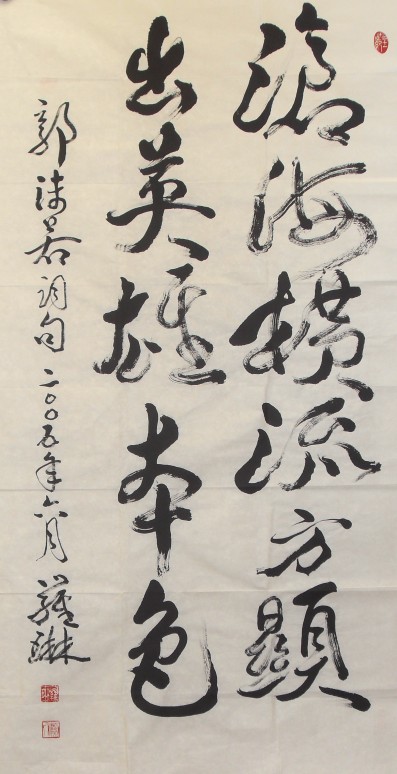 滄海横流方顯
出英雄本色
郭沫若词句二〇〇五年六月